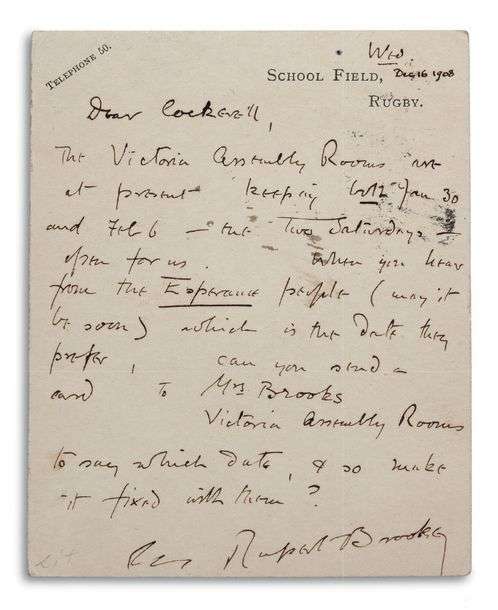 TELEPHONE 50.
Wed
SCHOOL FIELD, Dec 16 1908
RUGBY.
Dear Cockerell,
The Victoria Assembly Rooms are
at present keeping both Jan 30
and Feb 6 — the two Saturdays —
open for us. When you hear
from the Esperance people (may it
be soon) which is the date they
prefer, can you send a
card to Mrs Brooks
Victoria Assembly Rooms
to say which date, & so make
it fixed with them?
Rupert Brooke